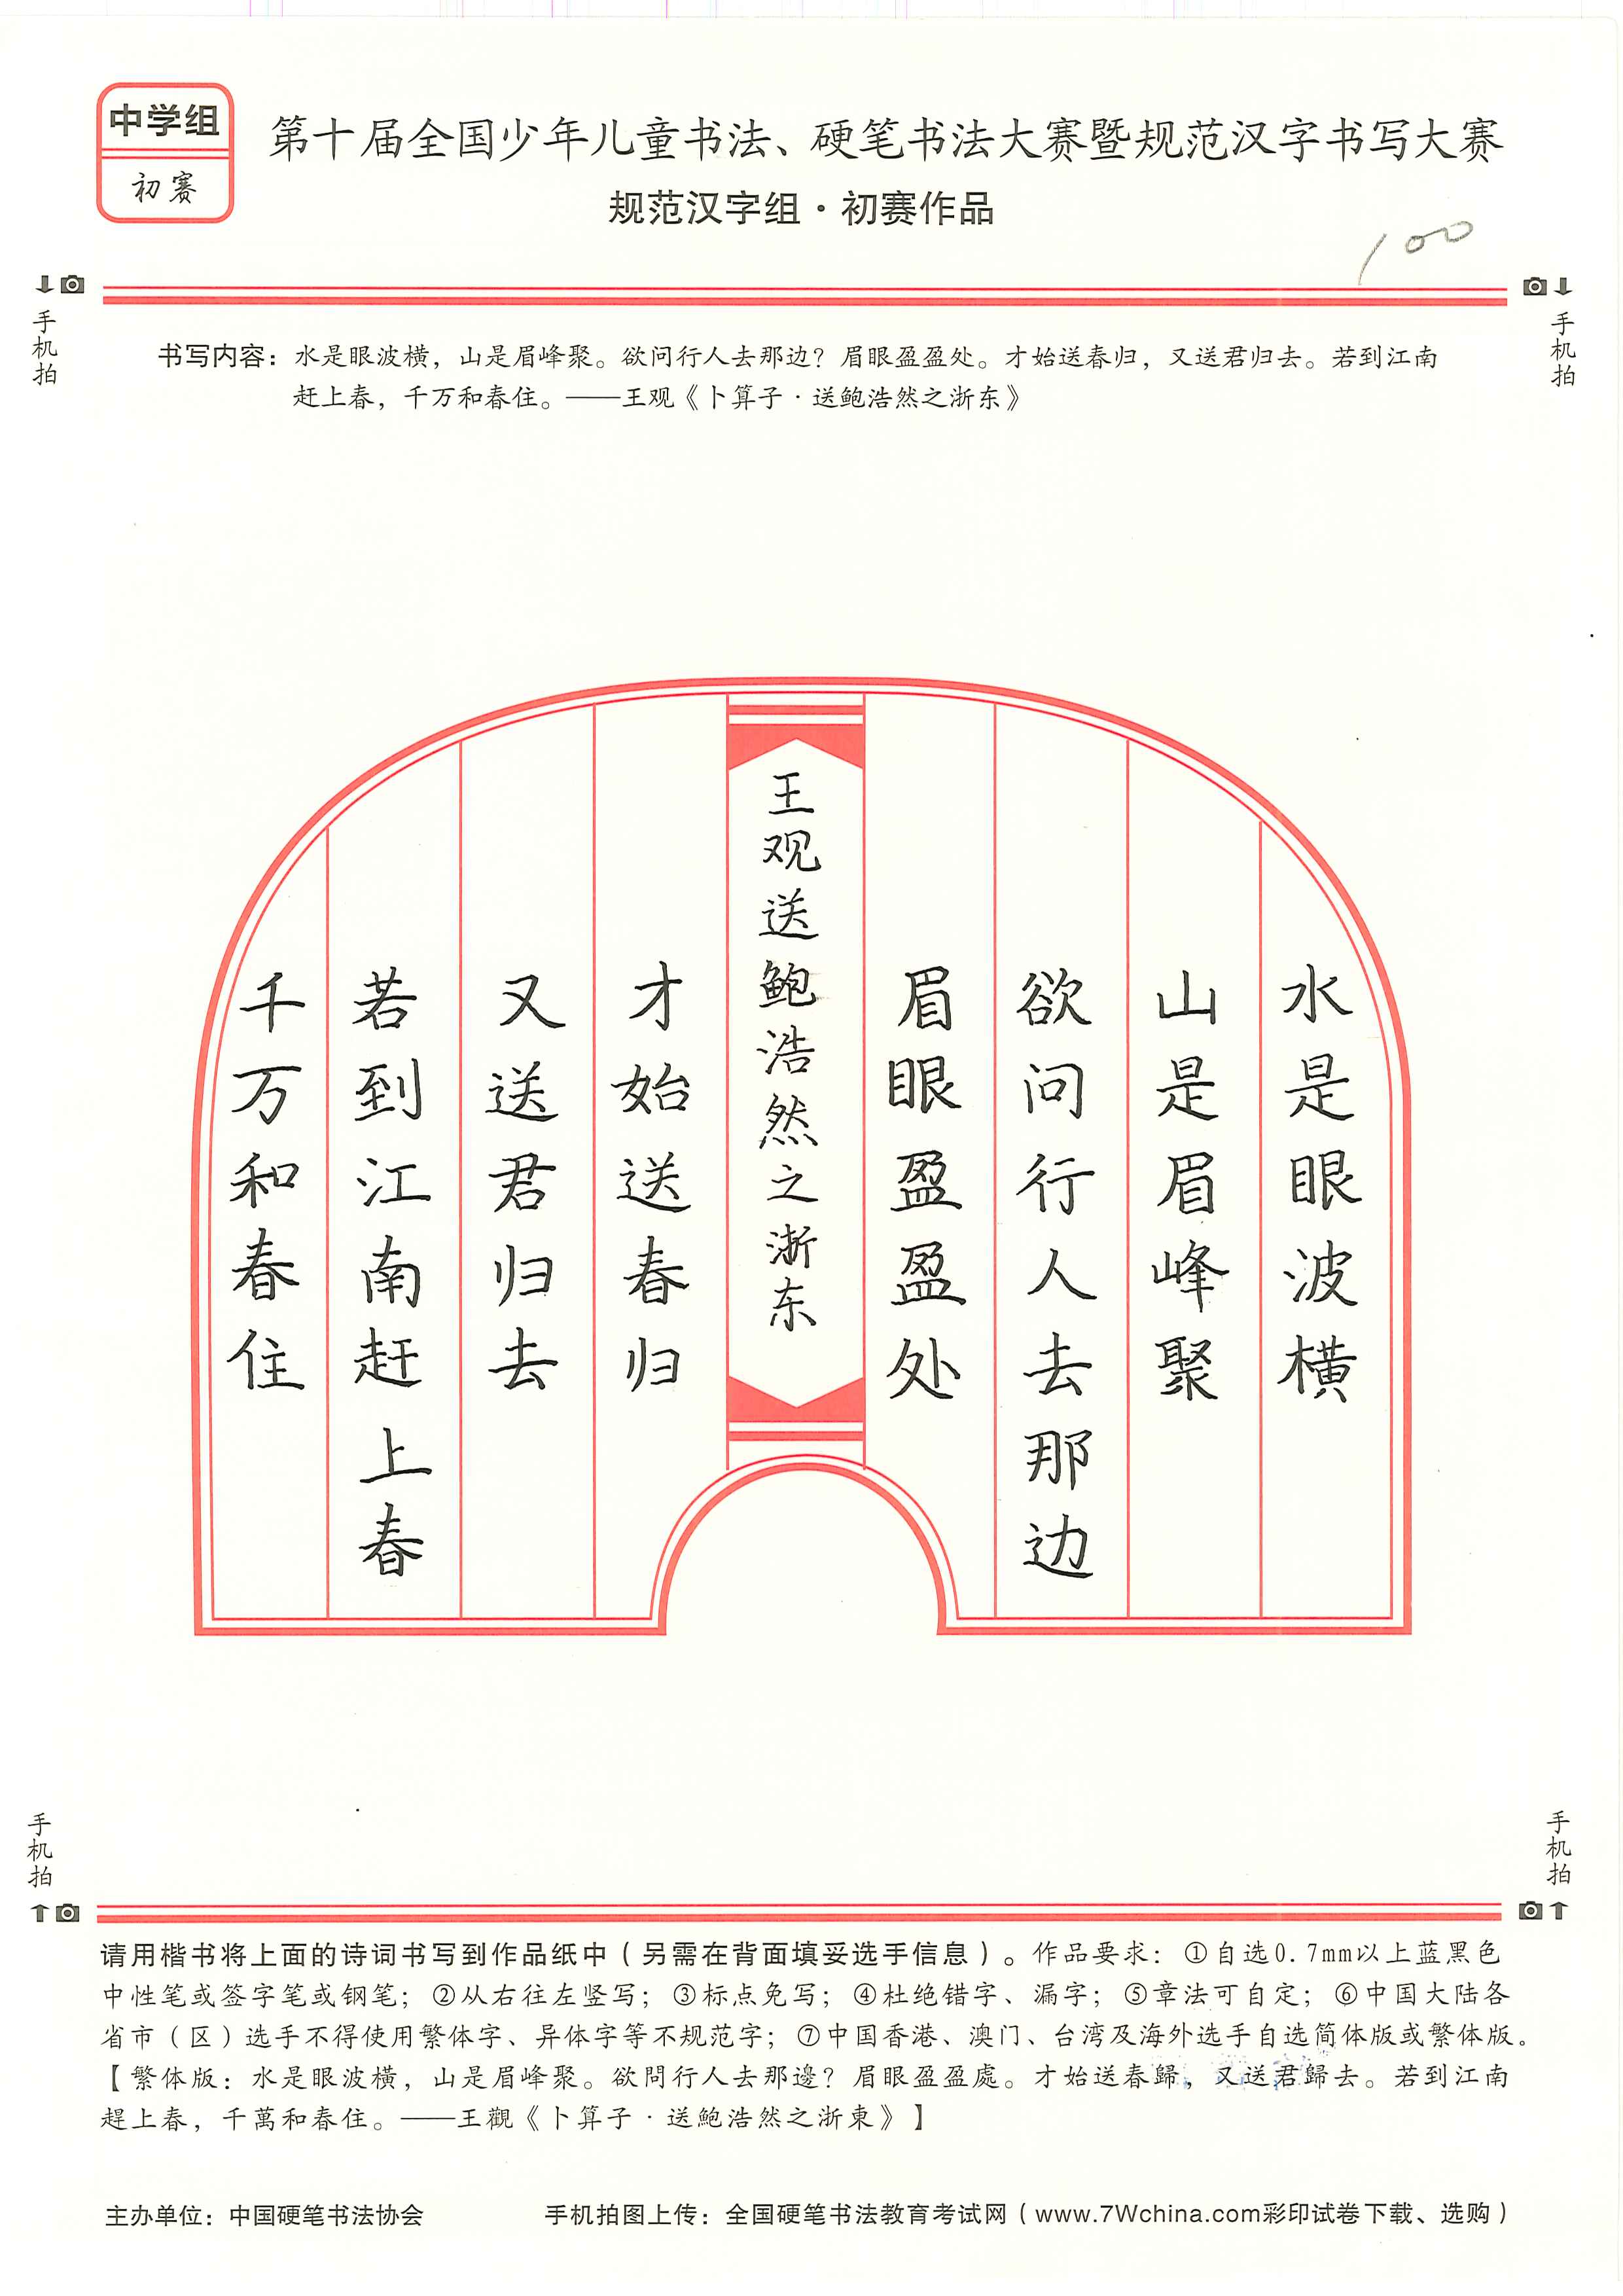 中学组
初赛
第十届全国少年儿童书法、硬笔书法大赛暨规范汉字书写大赛
规范汉字组·初赛作品
100
手机拍
手机拍
书写内容：水是眼波横，山是眉峰聚。欲问行人去那边？眉眼盈盈处。才始送春归，又送君归去。若到江南
赶上春，千万和春住。——王观《卜算子·送鲍浩然之浙东》
水是眼波横
山是眉峰聚
欲问行人去那边
眉眼盈盈处
王观送鲍浩然之浙东
才始送春归
又送君归去
若到江南赶上春
千万和春住
手机拍
手机拍
请用楷书将上面的诗词书写到作品纸中（另需在背面填妥选手信息）。作品要求：①自选0.7mm以上蓝黑色
中性笔或签字笔或钢笔；②从右往左竖写；③标点免写；④杜绝错字、漏字；⑤章法可自定；⑥中国大陆各
省市（区）选手不得使用繁体字、异体字等不规范字；⑦中国香港、澳门、台湾及海外选手自选简体版或繁体版。
【繁体版：水是眼波横，山是眉峰聚。欲問行人去那邊？眉眼盈盈處。才始送春歸，又送君歸去。若到江南
趕上春，千萬和春住。——王觀《卜算子·送鮑浩然之浙東》】
主办单位：中国硬笔书法协会
手机拍图上传：全国硬笔书法教育考试网（www.7Wchina.com彩印试卷下载、选购）